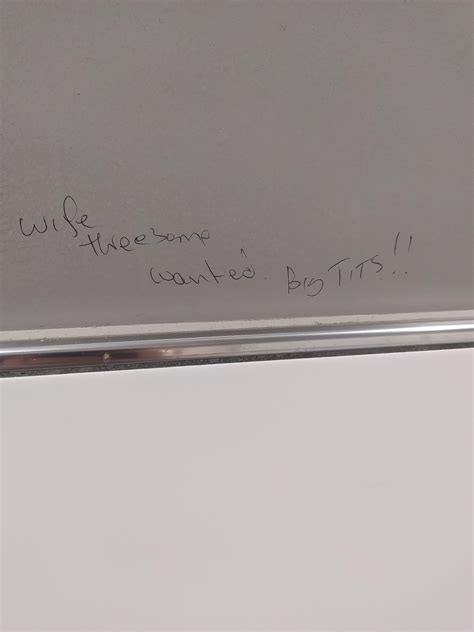 wife
threesome
wanted. Big TITS!!